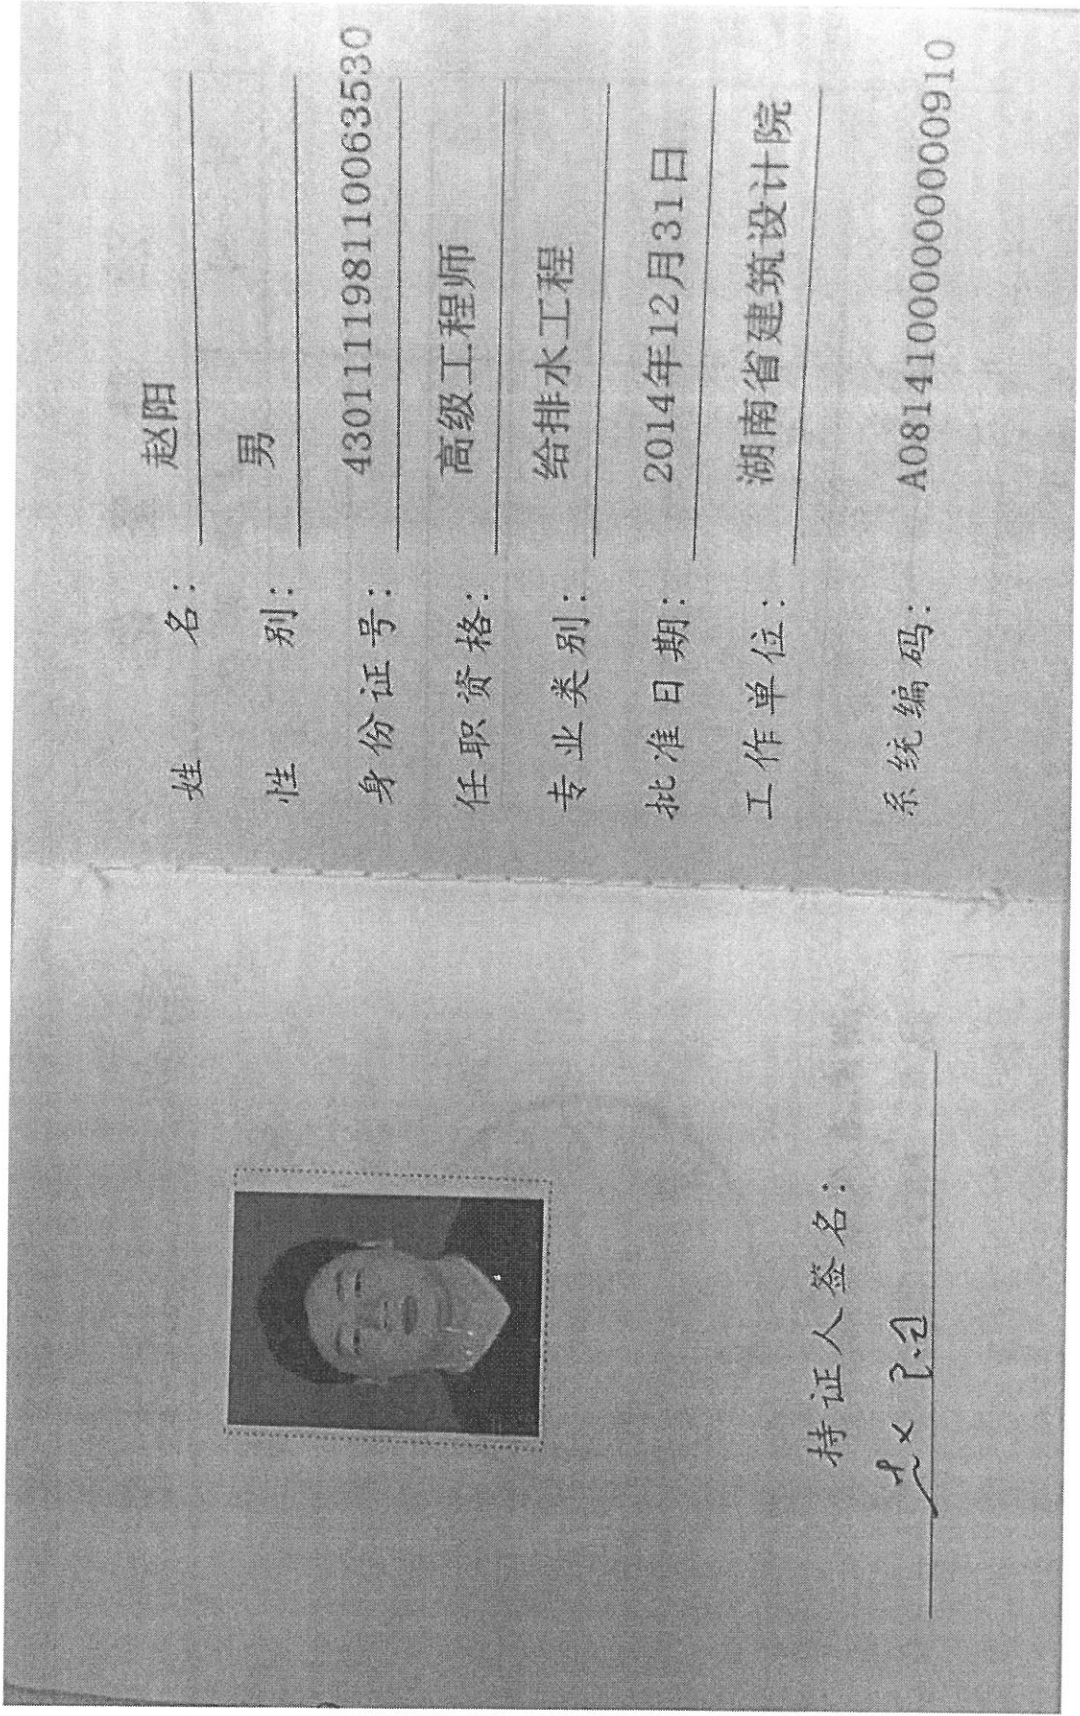 持证人签名：
赵阳
姓名：赵阳
性别：男
身份证号：430111198110063530
任职资格：高级工程师
专业类别：给排水工程
批准日期：2014年12月31日
工作单位：湖南省建筑设计院
系统编码：A08141000000000910